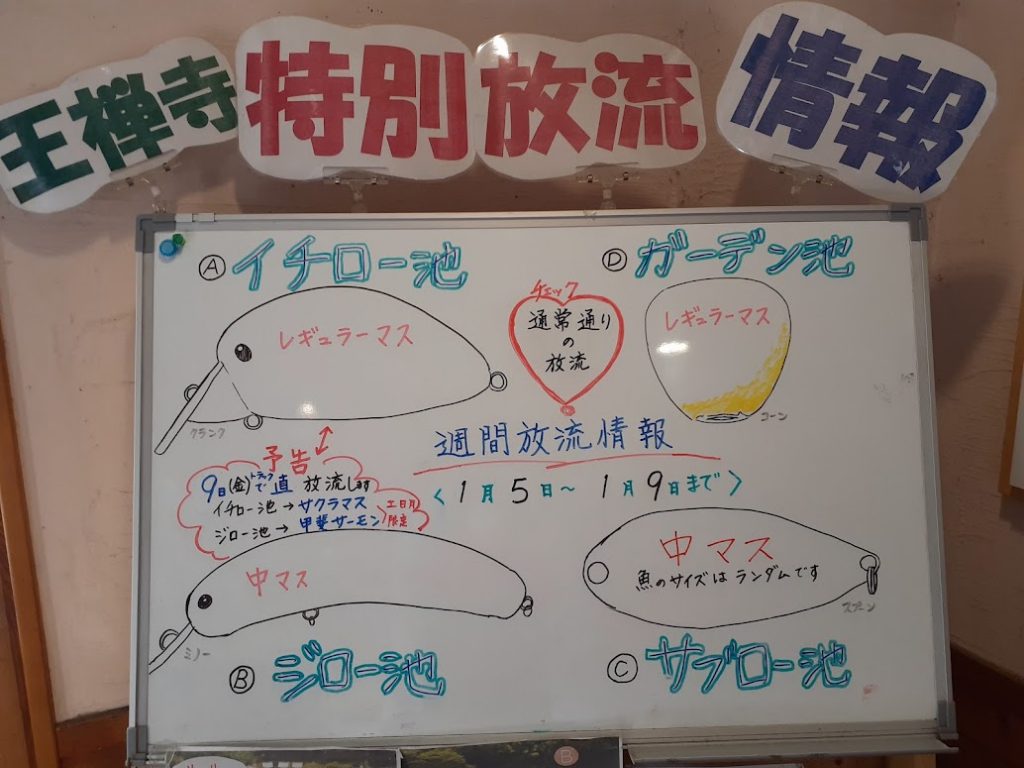 王禅寺 特別放流 情報
Ⓐ イチロー池
レギュラーマス
クランク
チェック
通常通り
の
放流
Ⓓ ガーデン池
レギュラーマス
コーン
週間放流情報
〈1月5日〜1月9日まで〉
予告
9日(金)トラックで直放流します
イチロー池→サクラマス
ジロー池→甲斐サーモン
土日月
限定
中マス
ミノー
Ⓑ ジロー池
中マス
魚のサイズはランダムです
スプーン
Ⓒ サブロー池
Ⓑ